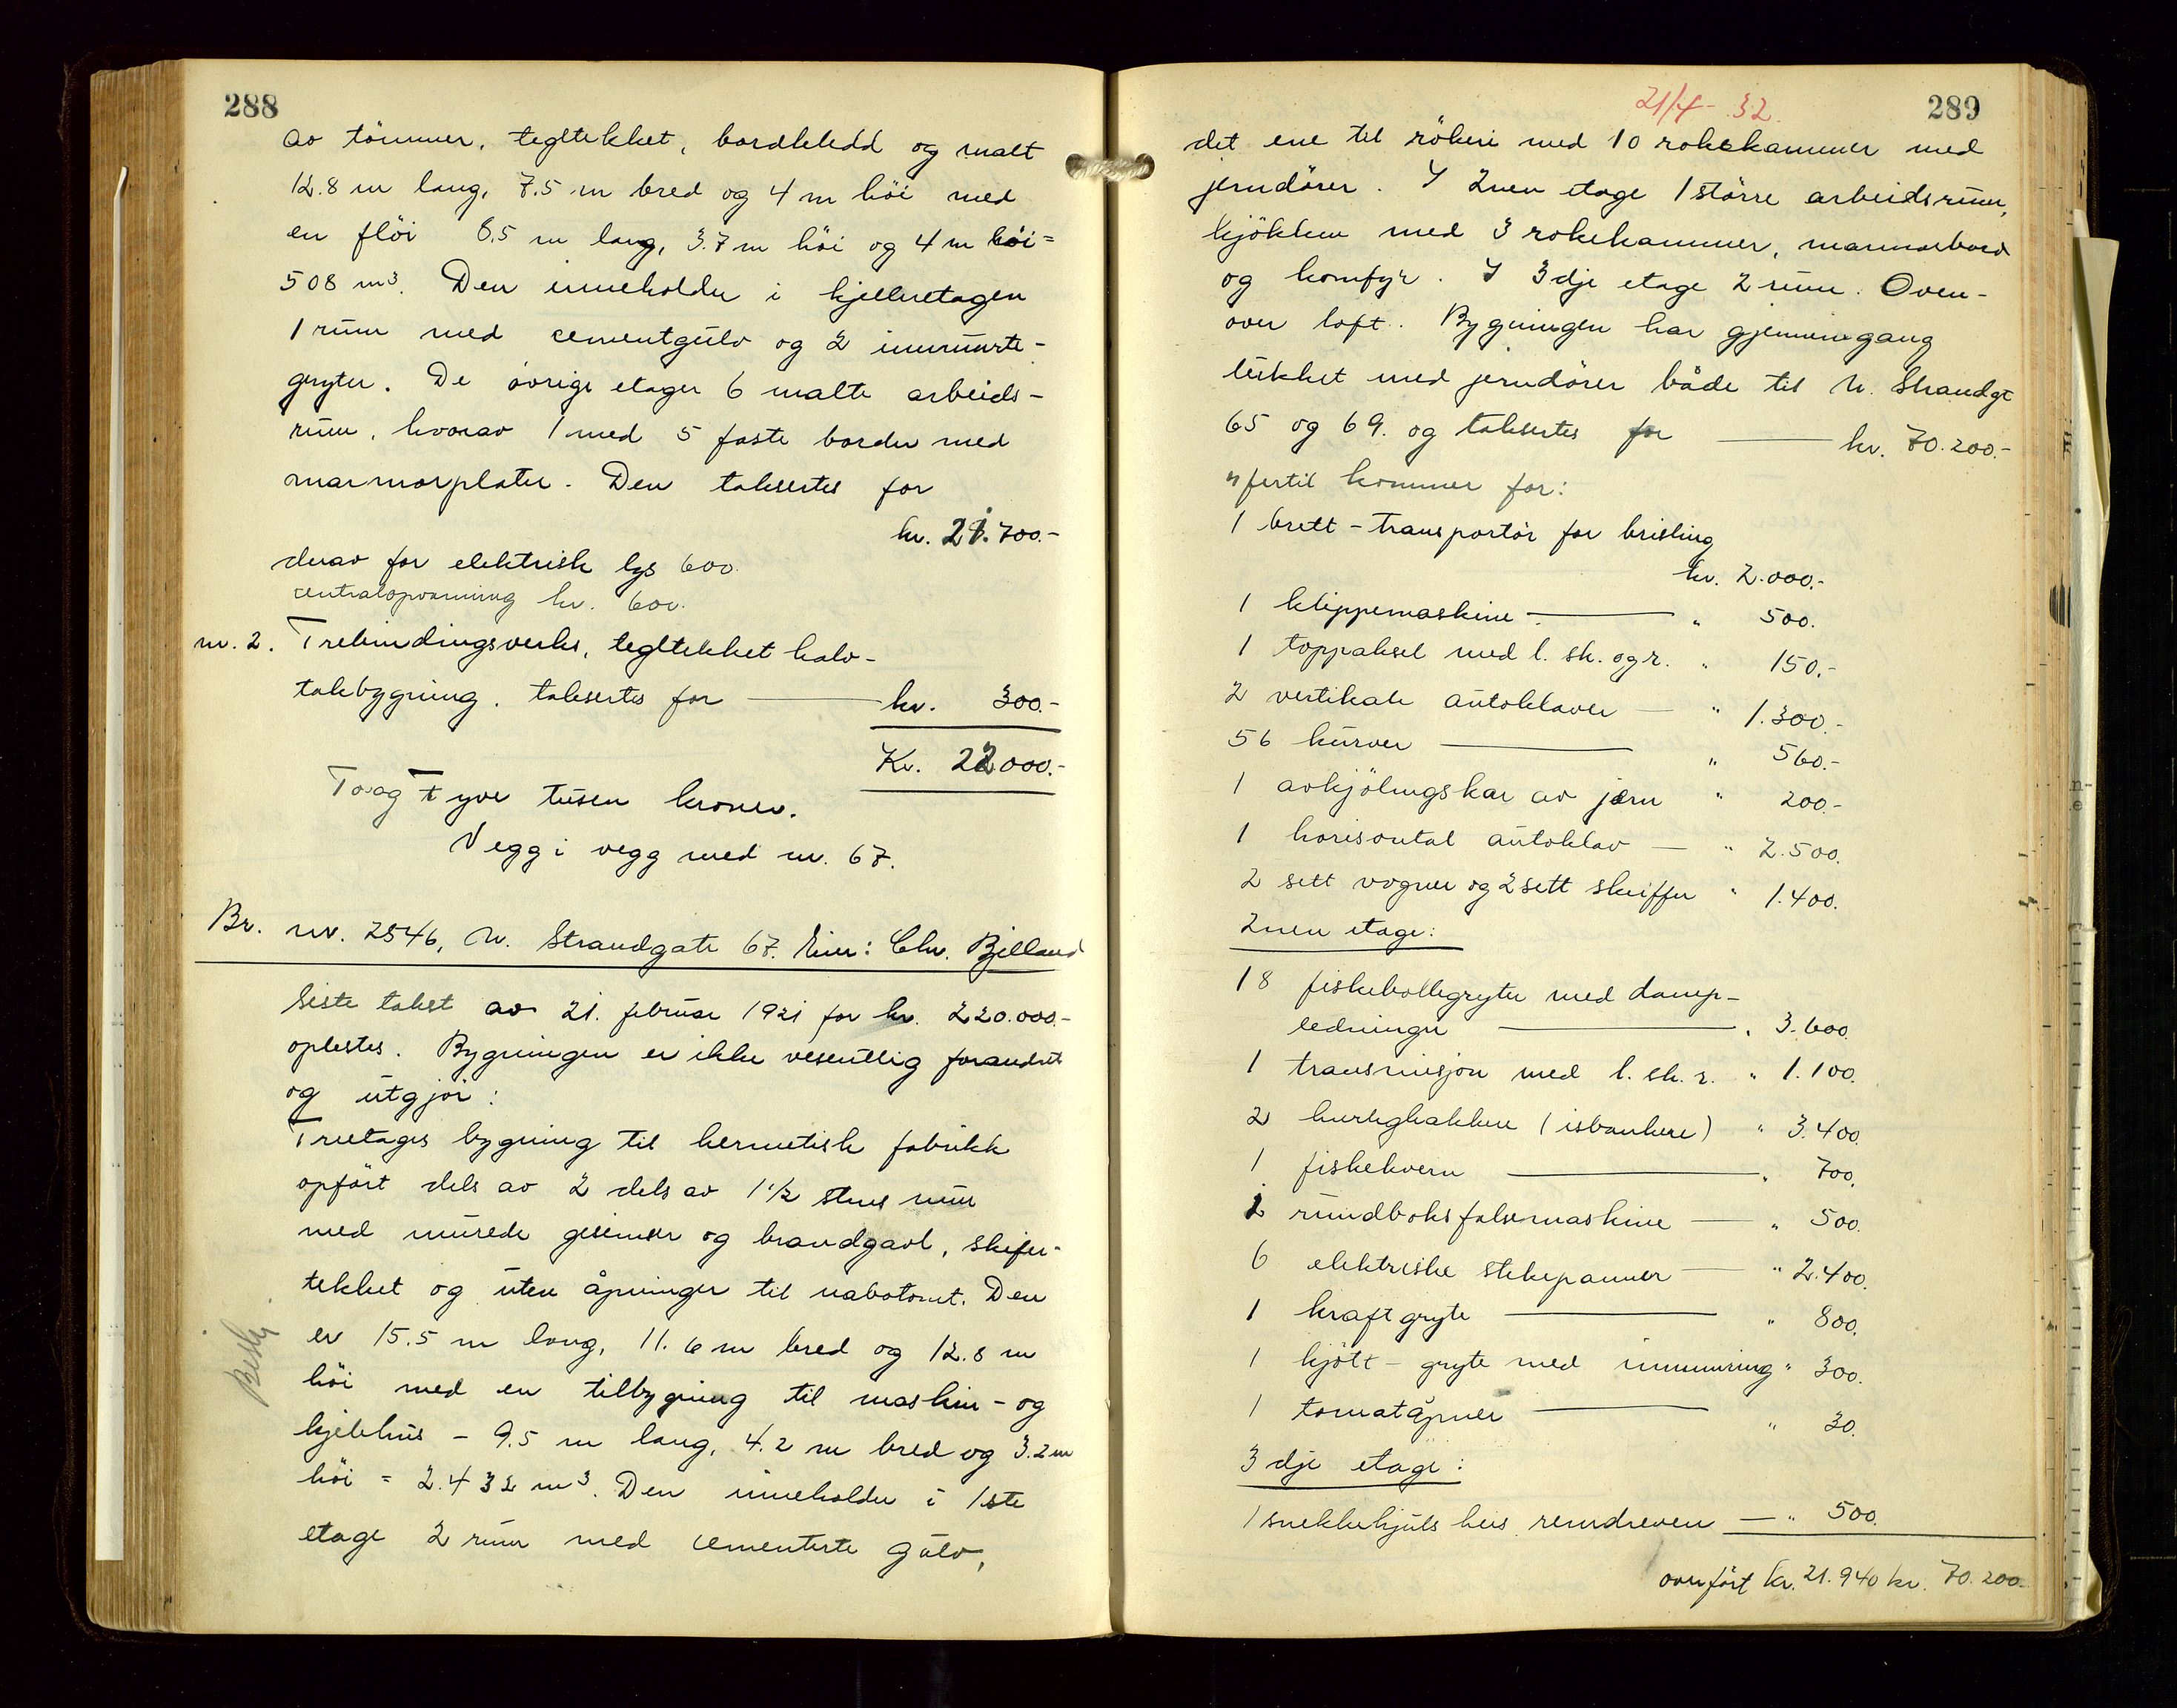 288
av tömmer, tegltekket, bordkledd og malt
12.8 m lang, 7.5 m bred og 4 m höi med
en flöi 8.5 m lang, 3.7 m höi og 4 m höi =
508 m³. Den inneholder i kjelleretagen
1 rum med cementgulv og 2 innmurte
gryter. De övrige etager 6 malte arbeids-
rum, hvorav 1 med 5 faste border med
marmorplater. Den taksertes for
kr. 21.700.-
derav for elektrisk lys 600.
centralopvarming kr. 600.
nr. 2. Trebindingsverks, tegltekket halv-
takbygning, taksertes for — kr. 300.-
Kr. 22000.-
To og Tyve tusen kroner.
Vegg i vegg med nr. 67.
Br. nr. 2546, N. Strandgate 67. Eier: Chr. Bjelland
Siste takst av 21. februar 1921 for kr. 220.000.-
oplestes. Bygningen er ikke vesentlig forandret
og utgjör:
Treetages bygning til hermetisk fabrikk
opfört dels av 2 dels av 1½ stens mur
med murede gesimser og brandgavl, skifer-
tekket og uten åpninger til nabotomt. Den
er 15.5 m lang, 11.6 m bred og 12.8 m
höi med en tilbygning til maskin- og
kjelehus - 9.5 m lang, 4.2 m bred og 3.2 m
höi = 2.432 m³. Den inneholder i 1ste
etage 2 rum med cementerte gulv,
21/4 - 32.
289
det ene til rökeri med 10 rökekammer med
jerndörer. I 2nen etage 1 större arbeidsrum,
kjökken med 3 rökekammer, marmorbord
og komfyr. I 3dje etage 2 rum. Oven-
over loft. Bygningen har gjennemgang
lukket med jerndörer både til N. Strandgt
65 og 69. og taksertes for — kr. 70.200.-
Hertil kommer for:
1 brett-transportör for brisling
kr. 2.000.-
1 klippemaskine — " 500.
1 toppaksel med l. sk. og r. " 150.-
2 vertikale autoklaver — " 1.300.-
56 kurver — " 560.-
1 avkjölingskar av jern " 200.-
1 horisontal autoklav — " 2.500.
2 sett vogner og 2 sett skuffer " 1.400.
2nen etage:
18 fiskebollegryter med damp-
ledninger — " 3.600.
1 transmisjon med l. sk. r. " 1.100.
2 hurtighakkere (isbankere) " 3.400.
1 fiskekvern — " 700.
1 rundboksfalsemaskine — " 500.
6 elektriske stekepanner — " 2.400.
1 kraftgryte — " 800.
1 kjött-gryte med innmuring " 300.
1 tomatåpner — " 30.
3dje etage:
1 snekkehjuls heis remdreven — " 500.
overfört kr. 21.940 kr. 70.200.-